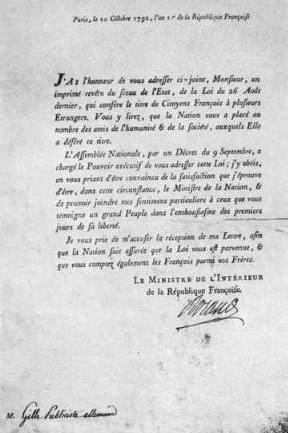 Paris, le 10 Octobre 1792, l'an 1.er de la République Françoise.
J'AI l'honneur de vous adresser ci-joint, Monsieur, un
imprimé revêtu du sceau de l'Etat, de la Loi du 26 Août
dernier, qui confère le titre de Citoyens François à plusieurs
Etrangers. Vous y lirez, que la Nation vous a placé au
nombre des amis de l'humanité & de la société, auxquels Elle
a déféré ce titre.
L'Assemblée Nationale, par un Décret du 9 Septembre, a
chargé le Pouvoir exécutif de vous adresser cette Loi; j'y obéis,
en vous priant d'être convaincu de la satisfaction que j'éprouve
d'être, dans cette circonstance, le Ministre de la Nation, &
de pouvoir joindre mes sentimens particuliers à ceux que vous
témoigne un grand Peuple dans l'enthousiasme des premiers
jours de sa liberté.
Je vous prie de m'accuser la réception de ma Lettre, afin
que la Nation soit assurée que la Loi vous est parvenue, &
que vous comptez également les François parmi vos Frères.
LE MINISTRE DE L'INTÉRIEUR
de la République Françoise.
Roland
M. Gille Publiciste allemand